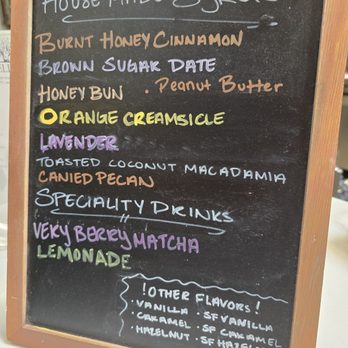 HOUSE MADE SYRUPS
BURNT HONEY CINNAMON
BROWN SUGAR DATE
HONEY BUN . Peanut Butter
ORANGE CREAMSICLE
LAVENDER
TOASTED COCONUT MACADAMIA
CANIED PECAN
SPECIALITY DRINKS
VERY BERRY MATCHA
LEMONADE
!OTHER FLAVORS!
·VANILLA · SF VANILLA
·CARAMEL · SF CARAMEL
·HAZELNUT · SF HAZEL